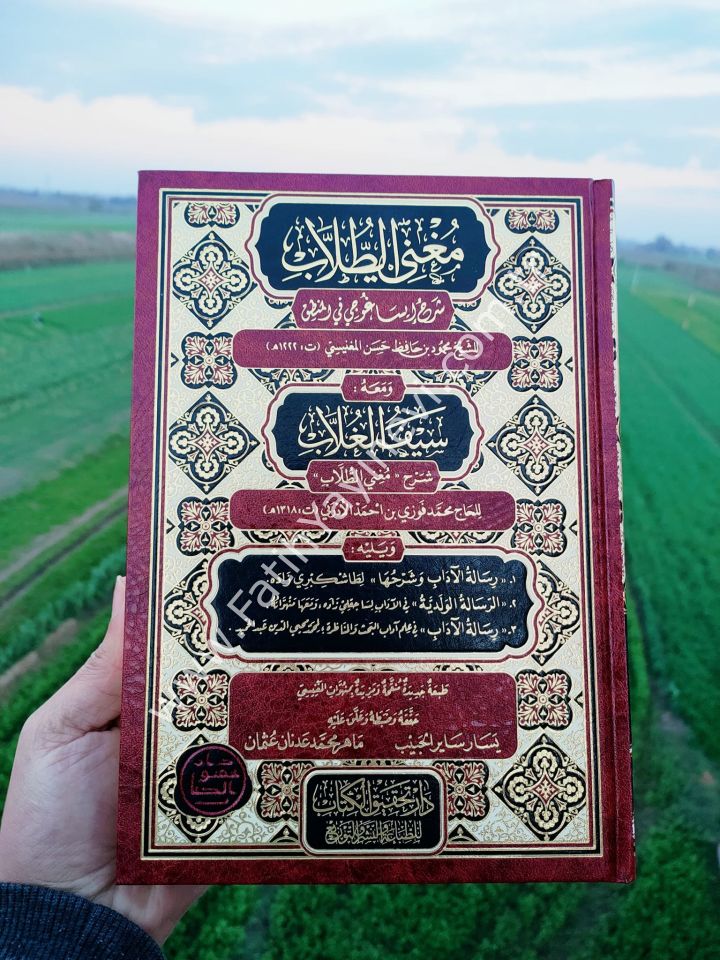 مُغْنِي الطُّلَّابِ
شَرْحُ إِيسَاغُوجِي فِي المَنْطِقِ
الشَّيْخِ مَحْمُود بْنِ حَافِظ حَسَن المَغْنِيسِيِّ (ت: ١٢٢٢هـ)
وَمَعَهُ :
سَيْفُ الغُلَّابِ
شَرْحُ «مُغْنِي الطُّلَّابِ»
لِلْحَاج مُحَمَّد فَوْزِي بْنِ أَحْمَدَ (ت: ١٣١٨هـ)
وَيَلِيْهِ :
١. «رِسَالَةُ الآدَابِ وَشَرْحُهَا» لِطَاشْكُبْرِي زَادَهْ.
٢. «الرِّسَالَةُ الوَلَدِيَّةُ» فِي الآدَابِ لِسَاجَقْلِي زَادَه ، وَمَعَهَا
٣. «رِسَالَةُ الآدَابِ» فِي عِلْمِ آدَابِ البَحْثِ وَالمُنَاظَرَةِ ؛ لِمُحَمَّد مُحْيِي الدِّينِ عَبْدِ الحَمِيد
طَبْعَةٌ جَدِيدَةٌ مُنَقَّحَةٌ وَمَزِيدَةٌ
حَقَّقَهُ وَضَبَطَهُ وَعَلَّقَ عَلَيْهِ
يَسَار سَايِر الحَبِيْب مَاهِر مُحَمَّد عَدْنَان عُثْمَان
دَارُ تَحْقِيقِ الكِتَابِ
لِلطِّبَاعَةِ وَالنَّشْرِ وَالتَّوْزِيعِ
www.Fatihyayinevi.com